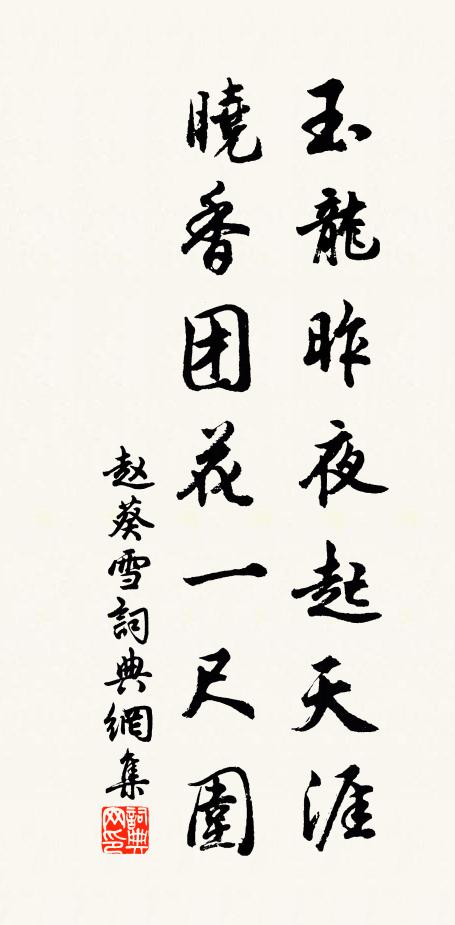 玉龍昨夜起天涯
曉香团花一尺圍
赵葵雪詞典網集
詞典网印